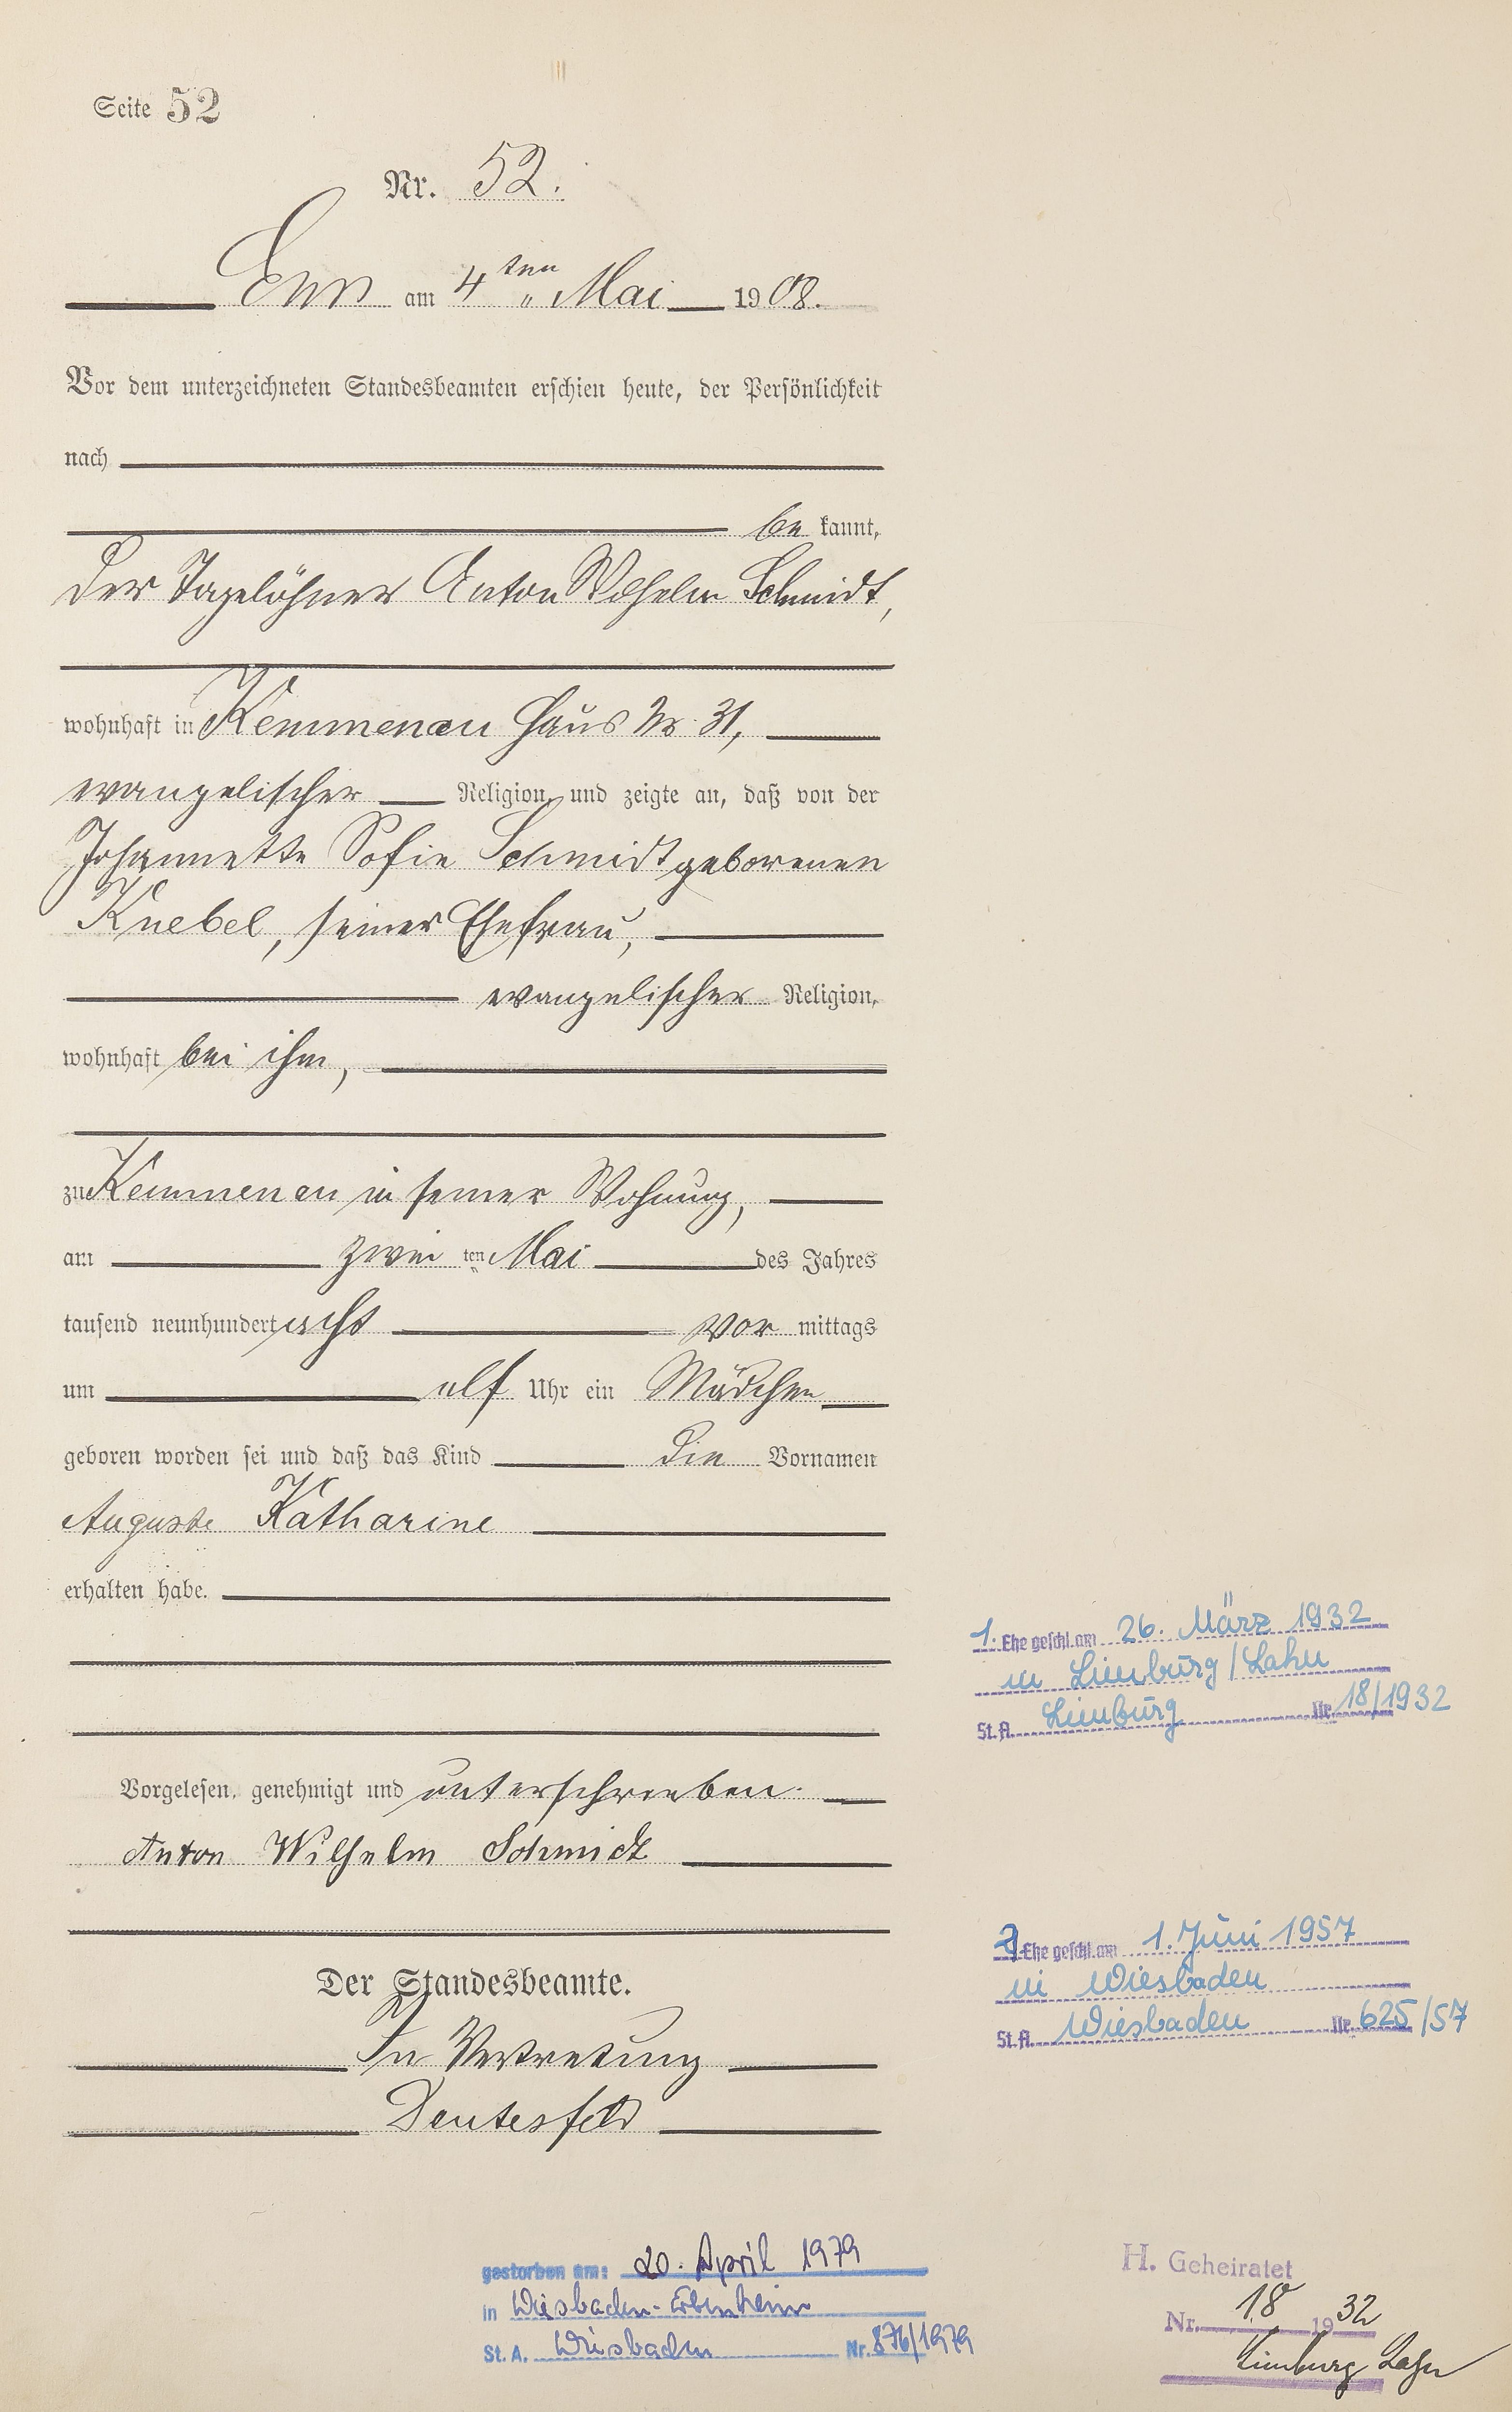 Seite 52
Nr. 52.
Ems am 4ten „ Mai 1908.
Vor dem unterzeichneten Standesbeamten erschien heute, der Persönlichkeit
nach
be kannt,
der Tagelöhner Anton Wilhelm Schmidt,
wohnhaft in Kemmenau Haus Nr. 31,
evangelischer Religion, und zeigte an, daß von der
Johannette Sofie Schmidt geborenen
Knebel, seiner Ehefrau,
evangelischer Religion,
wohnhaft bei ihm,
zu Kemmenau in seiner Wohnung,
am zwei ten „ Mai des Jahres
tausend neunhundert acht vor mittags
um elf Uhr ein Mädchen
geboren worden sei und daß das Kind die Vornamen
Auguste Katharine
erhalten habe.
1. Ehe geschl. am 26. März 1932
in Limburg/Lahn
St. A. Limburg Nr. 18/1932
Vorgelesen, genehmigt und unterschrieben.
Anton Wilhelm Schmidt
2. Ehe geschl. am 1. Juni 1957
in Wiesbaden
St. A. Wiesbaden Nr. 625/57
Der Standesbeamte.
In Vertretung
Deutesfeld
gestorben am: 20. April 1979
in Wiesbaden-Erbenheim
St. A. Wiesbaden Nr. 876/1979
H. Geheiratet
Nr. 18 1932
Limburg Lahn